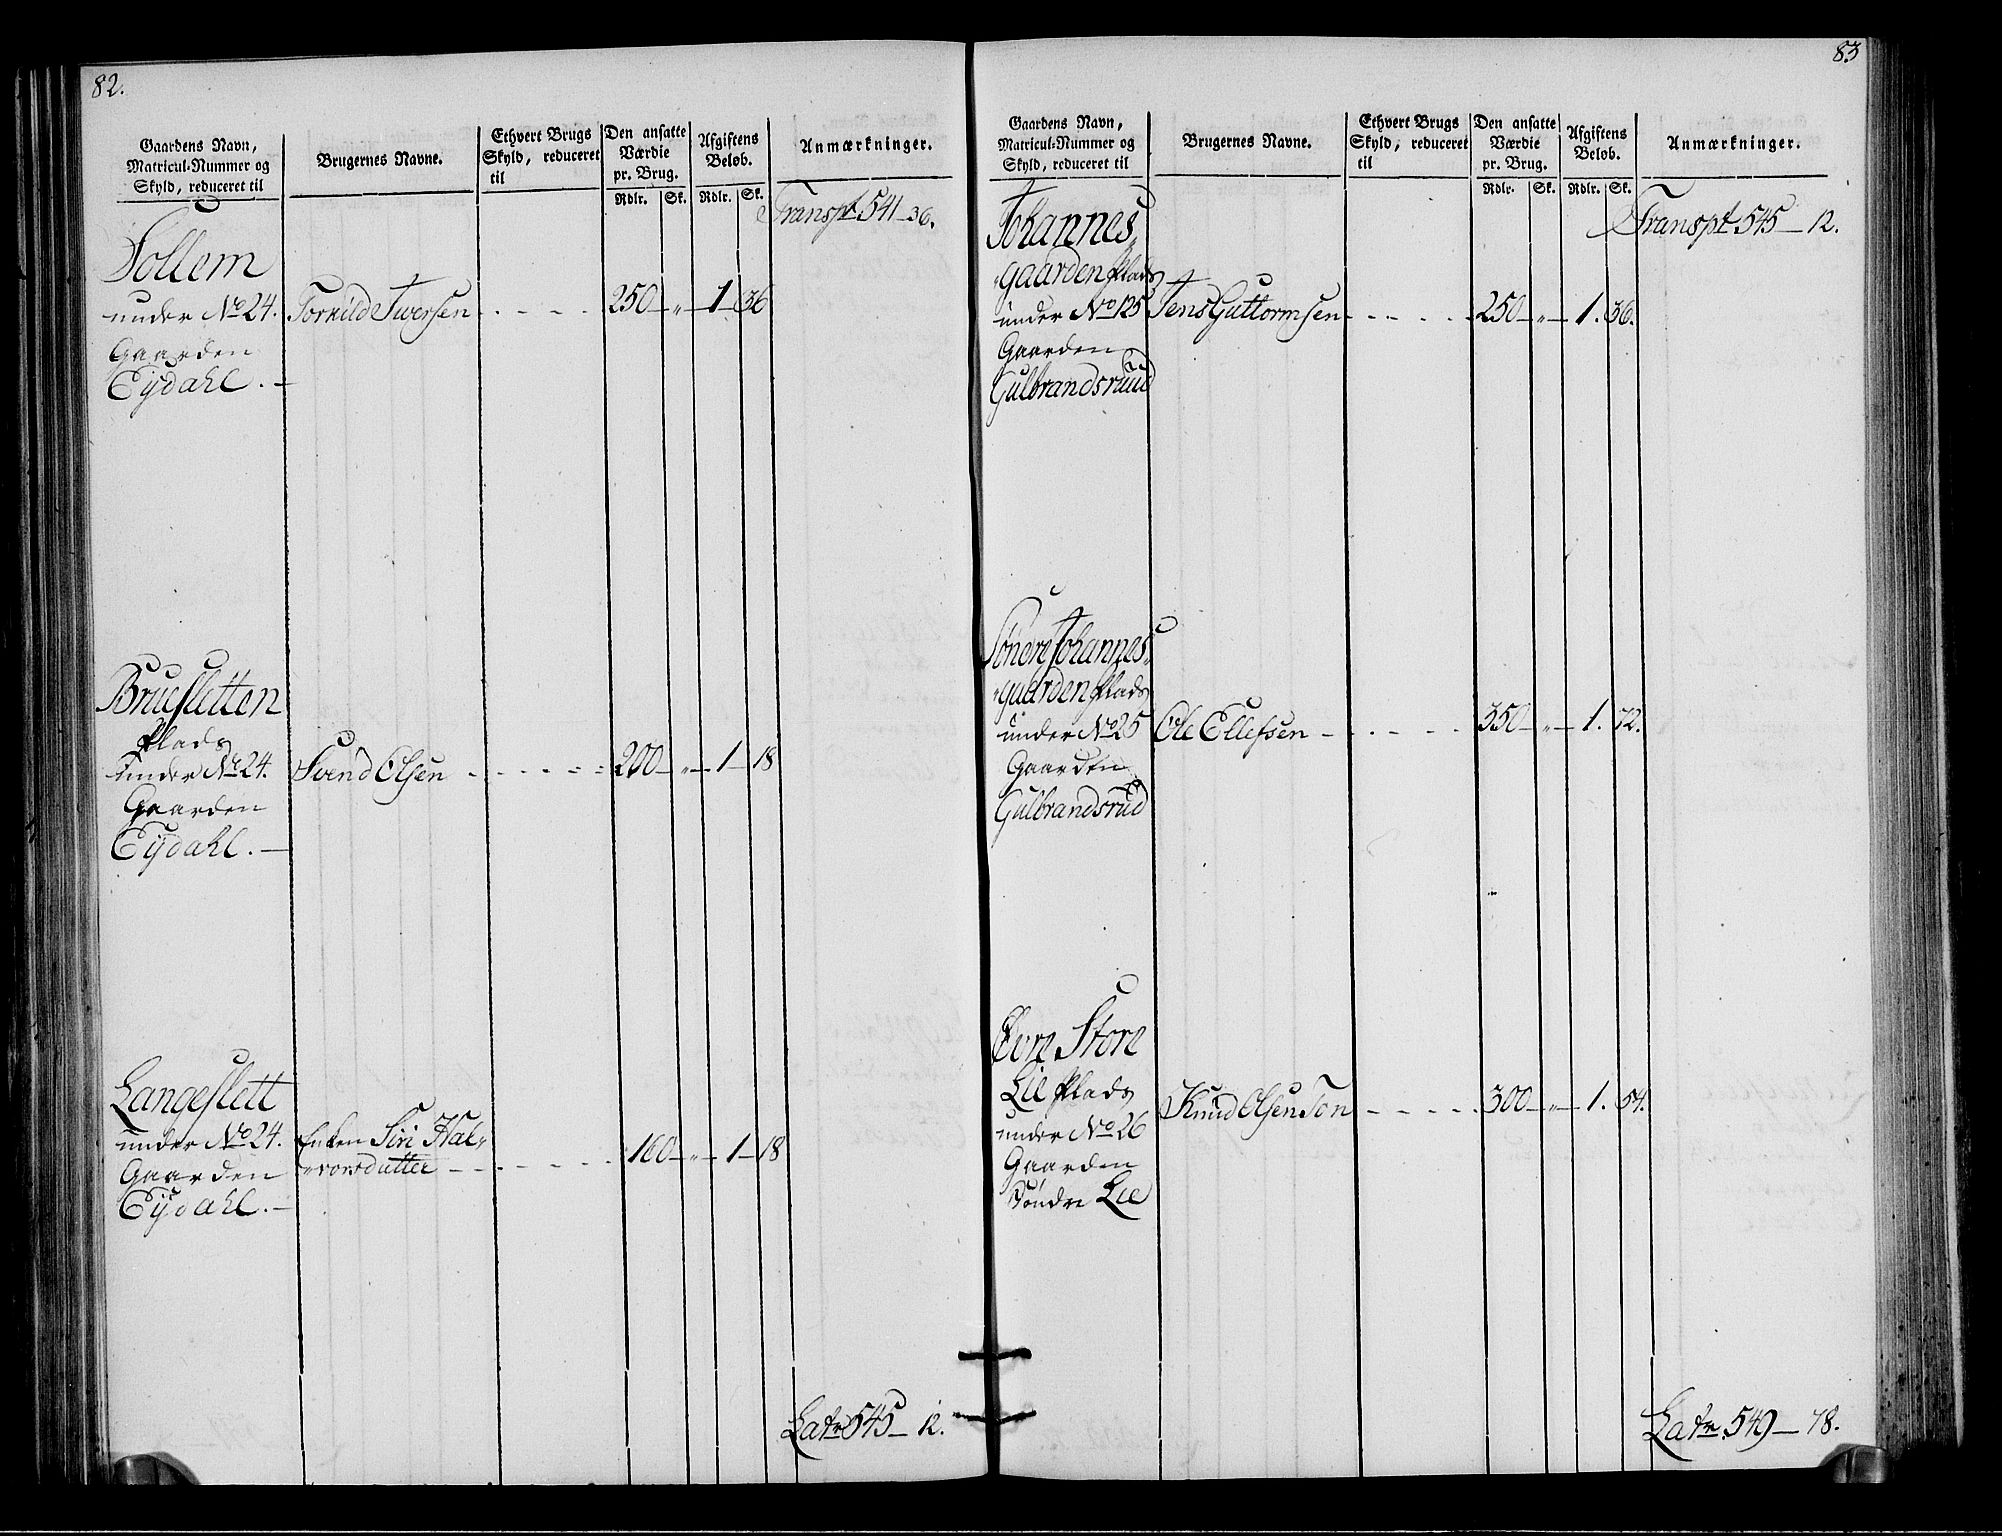 82.
Gaardens Navn, Matricul-Nummer og Skyld, reduceret til
Brugernes Navne.
Ethvert Brugs Skyld, reduceret til
Den ansatte Værdie pr. Brug.
Afgiftens Beløb.
Anmærkninger.
Rdlr. Sk. Rdlr. Sk.
Transpt 541 – 36.
Sollem
under No 24. Torkild Iversen - - - - 250 – „ – 1 – 36
Gaarden
Eijdahl. –
Bruesletten
Plads
under No 24. Svend Olsen - - - - - - 200 – „ – 1 – 18
Gaarden
Eijdahl. –
Langeslett
under No 24. Enken Siri Hal-
Gaarden vorsdatter - - - - - - 160 – „ – 1 – 18
Eijdahl. –
Latr 545 – 12.
83
Gaardens Navn, Matricul-Nummer og Skyld, reduceret til
Brugernes Navne.
Ethvert Brugs Skyld, reduceret til
Den ansatte Værdie pr. Brug.
Afgiftens Beløb.
Anmærkninger.
Rdlr. Sk. Rdlr. Sk.
Transpt 545 – 12.
Johannes-
gaarden Plads
under No 125 Jens Guttormsen - - - - - 250 – „ – 1. 36.
Gaarden
Gulbrandsruud
Søndre Johannes-
gaarden Plads
under No 25 Ole Ellefsen - - - - - 350 – „ – 1. 72.
Gaarden
Gulbrandsrud
Øvre Store
Lie Plads
under No 26 Knud Olsen Ton - - - - - 300 – „ – 1. 54.
Gaarden
Søndre Lie
Latr 549 – 78.